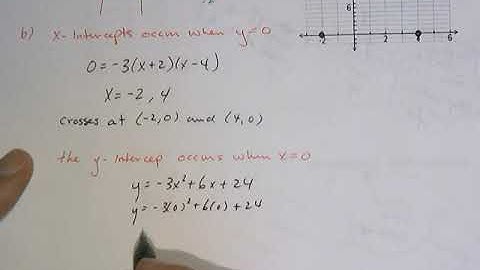 b) x-intercepts occur when y=0
0=-3(x+2)(x-4)
x=-2, 4
crosses at (-2,0) and (4,0)
the y-intercep occurs when x=0
y=-3x²+6x+24
y=-3(0)²+6(0)+24
y
6
-2
4
6